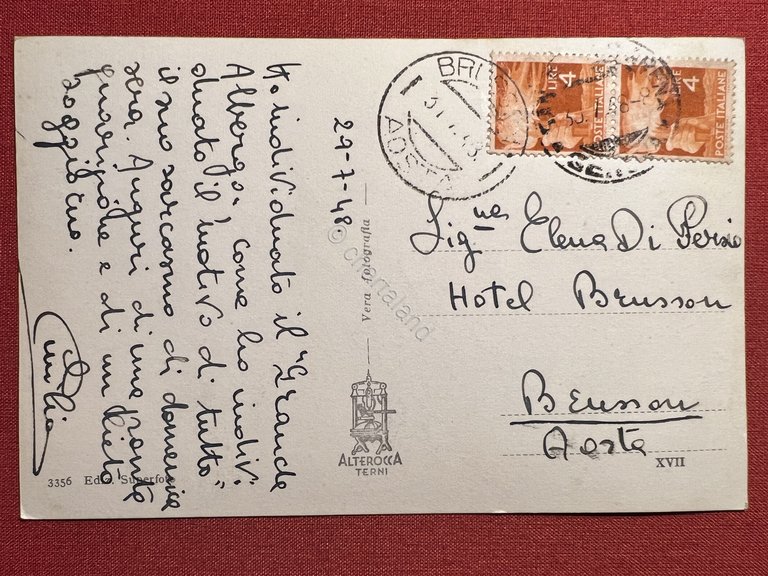 29-7-48
Ho individuato il "Grande
Albergo" come ho indivi-
duato il "motivo di tutto"
il suo sarcasmo di domenica
sera. Auguri di una pronta
guarigione e di un lieto
soggiorno.
Sig.na Elena Di Persio
Hotel Brusson
Brusson
Aosta
BRUSSON
AOSTA
LIRE 4
POSTE ITALIANE
LIRE 4
POSTE ITALIANE
Vera fotografia
© chartaland
ALTEROCCA
TERNI
3356 Ediz. Superfoto
XVII